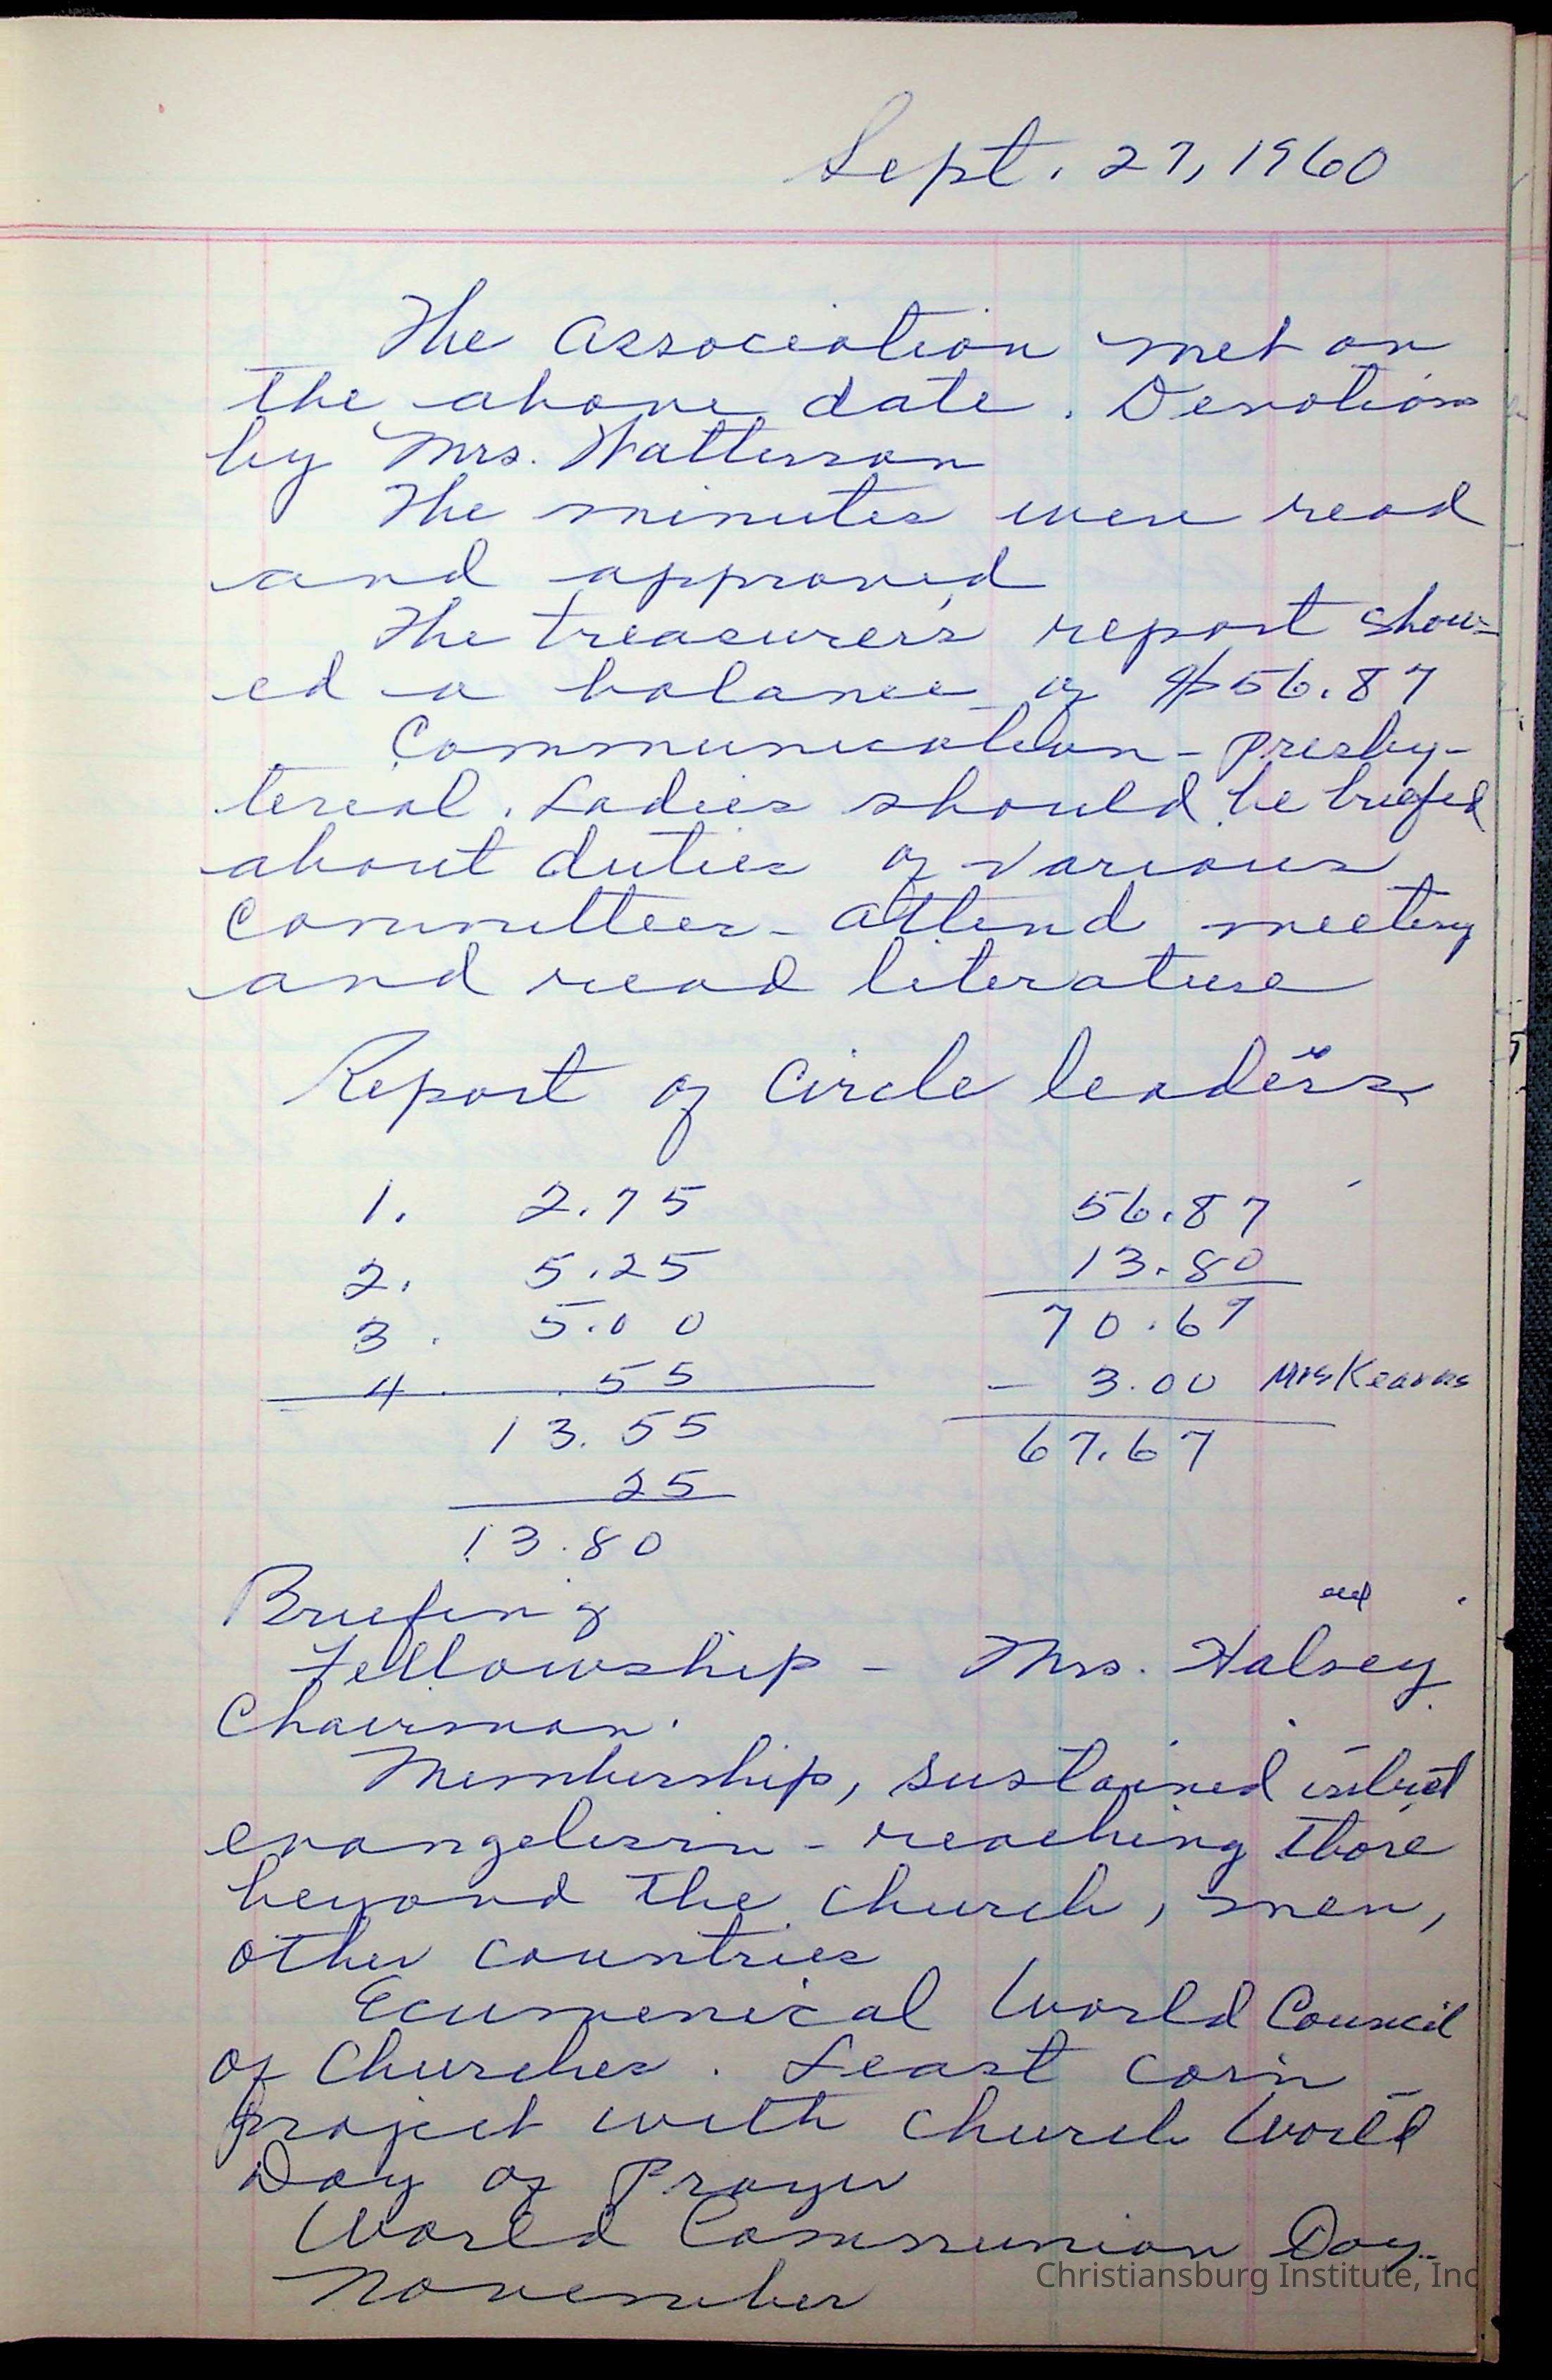 Sept. 27, 1960
The Association met on
the above date. Devotions
by Mrs. Watterson
The minutes were read
and approved
The treasurer's report show-
ed a balance of $56.87
Communication - Presby-
terial. Ladies should be briefed
about duties of various
Committees - attend meeting
and read literature
Report of Circle leaders
1. 2.75 56.87
2. 5.25 13.80
3. 5.00 70.67
4. .55 - 3.00 Mrs Kearns
13.55 67.67
25
13.80
Briefing
Fellowship - Mrs. Halsey
Chairman.
Membership, sustained
evangelism - reaching those
beyond the church, men,
other countries
Ecumenical World Council
of Churches. Least corn
Project with Church World
Day of Prayer
World Communion Day
November
Christiansburg Institute, Inc